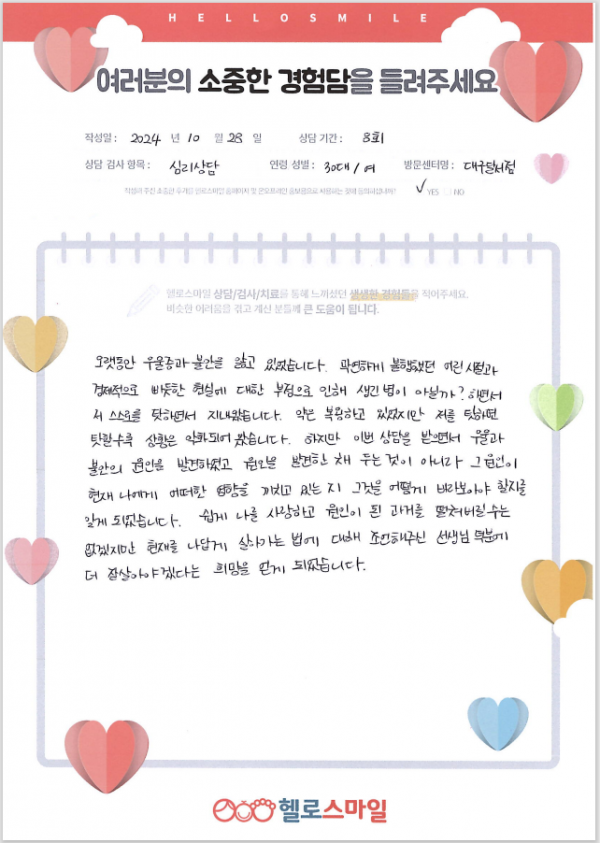 HELLOSMILE
여러분의 소중한 경험담을 들려주세요
작성일 : 2024 년 10 월 28 일 상담 기간 : 8회
상담 검사 항목 : 심리상담 연령 성별 : 30대 / 여 방문센터명 : 대구달서점
작성해 주신 소중한 후기를 헬로스마일 홈페이지 및 온오프라인 홍보용으로 사용하는 것에 동의하십니까? ✓ YES NO
헬로스마일 상담/검사/치료를 통해 느끼셨던 생생한 경험들을 적어주세요.
비슷한 어려움을 겪고 계신 분들께 큰 도움이 됩니다.
오랫동안 우울증과 불안을 앓고 있었습니다. 과연하게 불행했던 어린 시절과
경제적으로 빠듯한 현실에 대한 부정으로 인해 생긴 병이 아닐까? 하면서
서 스스로를 탓하면서 지내왔습니다. 약은 복용하고 있었지만 저를 탓하면
탓할수록 상황은 악화되어 갔습니다. 하지만 이번 상담을 받으면서 우울과
불안의 원인을 발견하였고 원인을 발견한 채 두는 것이 아니라 그 원인이
현재 나에게 어떠한 영향을 끼치고 있는 지 그것을 어떻게 바라보아야 할지를
알게 되었습니다. 쉽게 나를 사랑하고 원인이 된 과거를 떨쳐버릴 수는
없겠지만 현재를 나답게 살아가는 법에 대해 조언해주신 선생님 덕분에
더 잘살아야겠다는 희망을 얻게 되었습니다.
헬로스마일